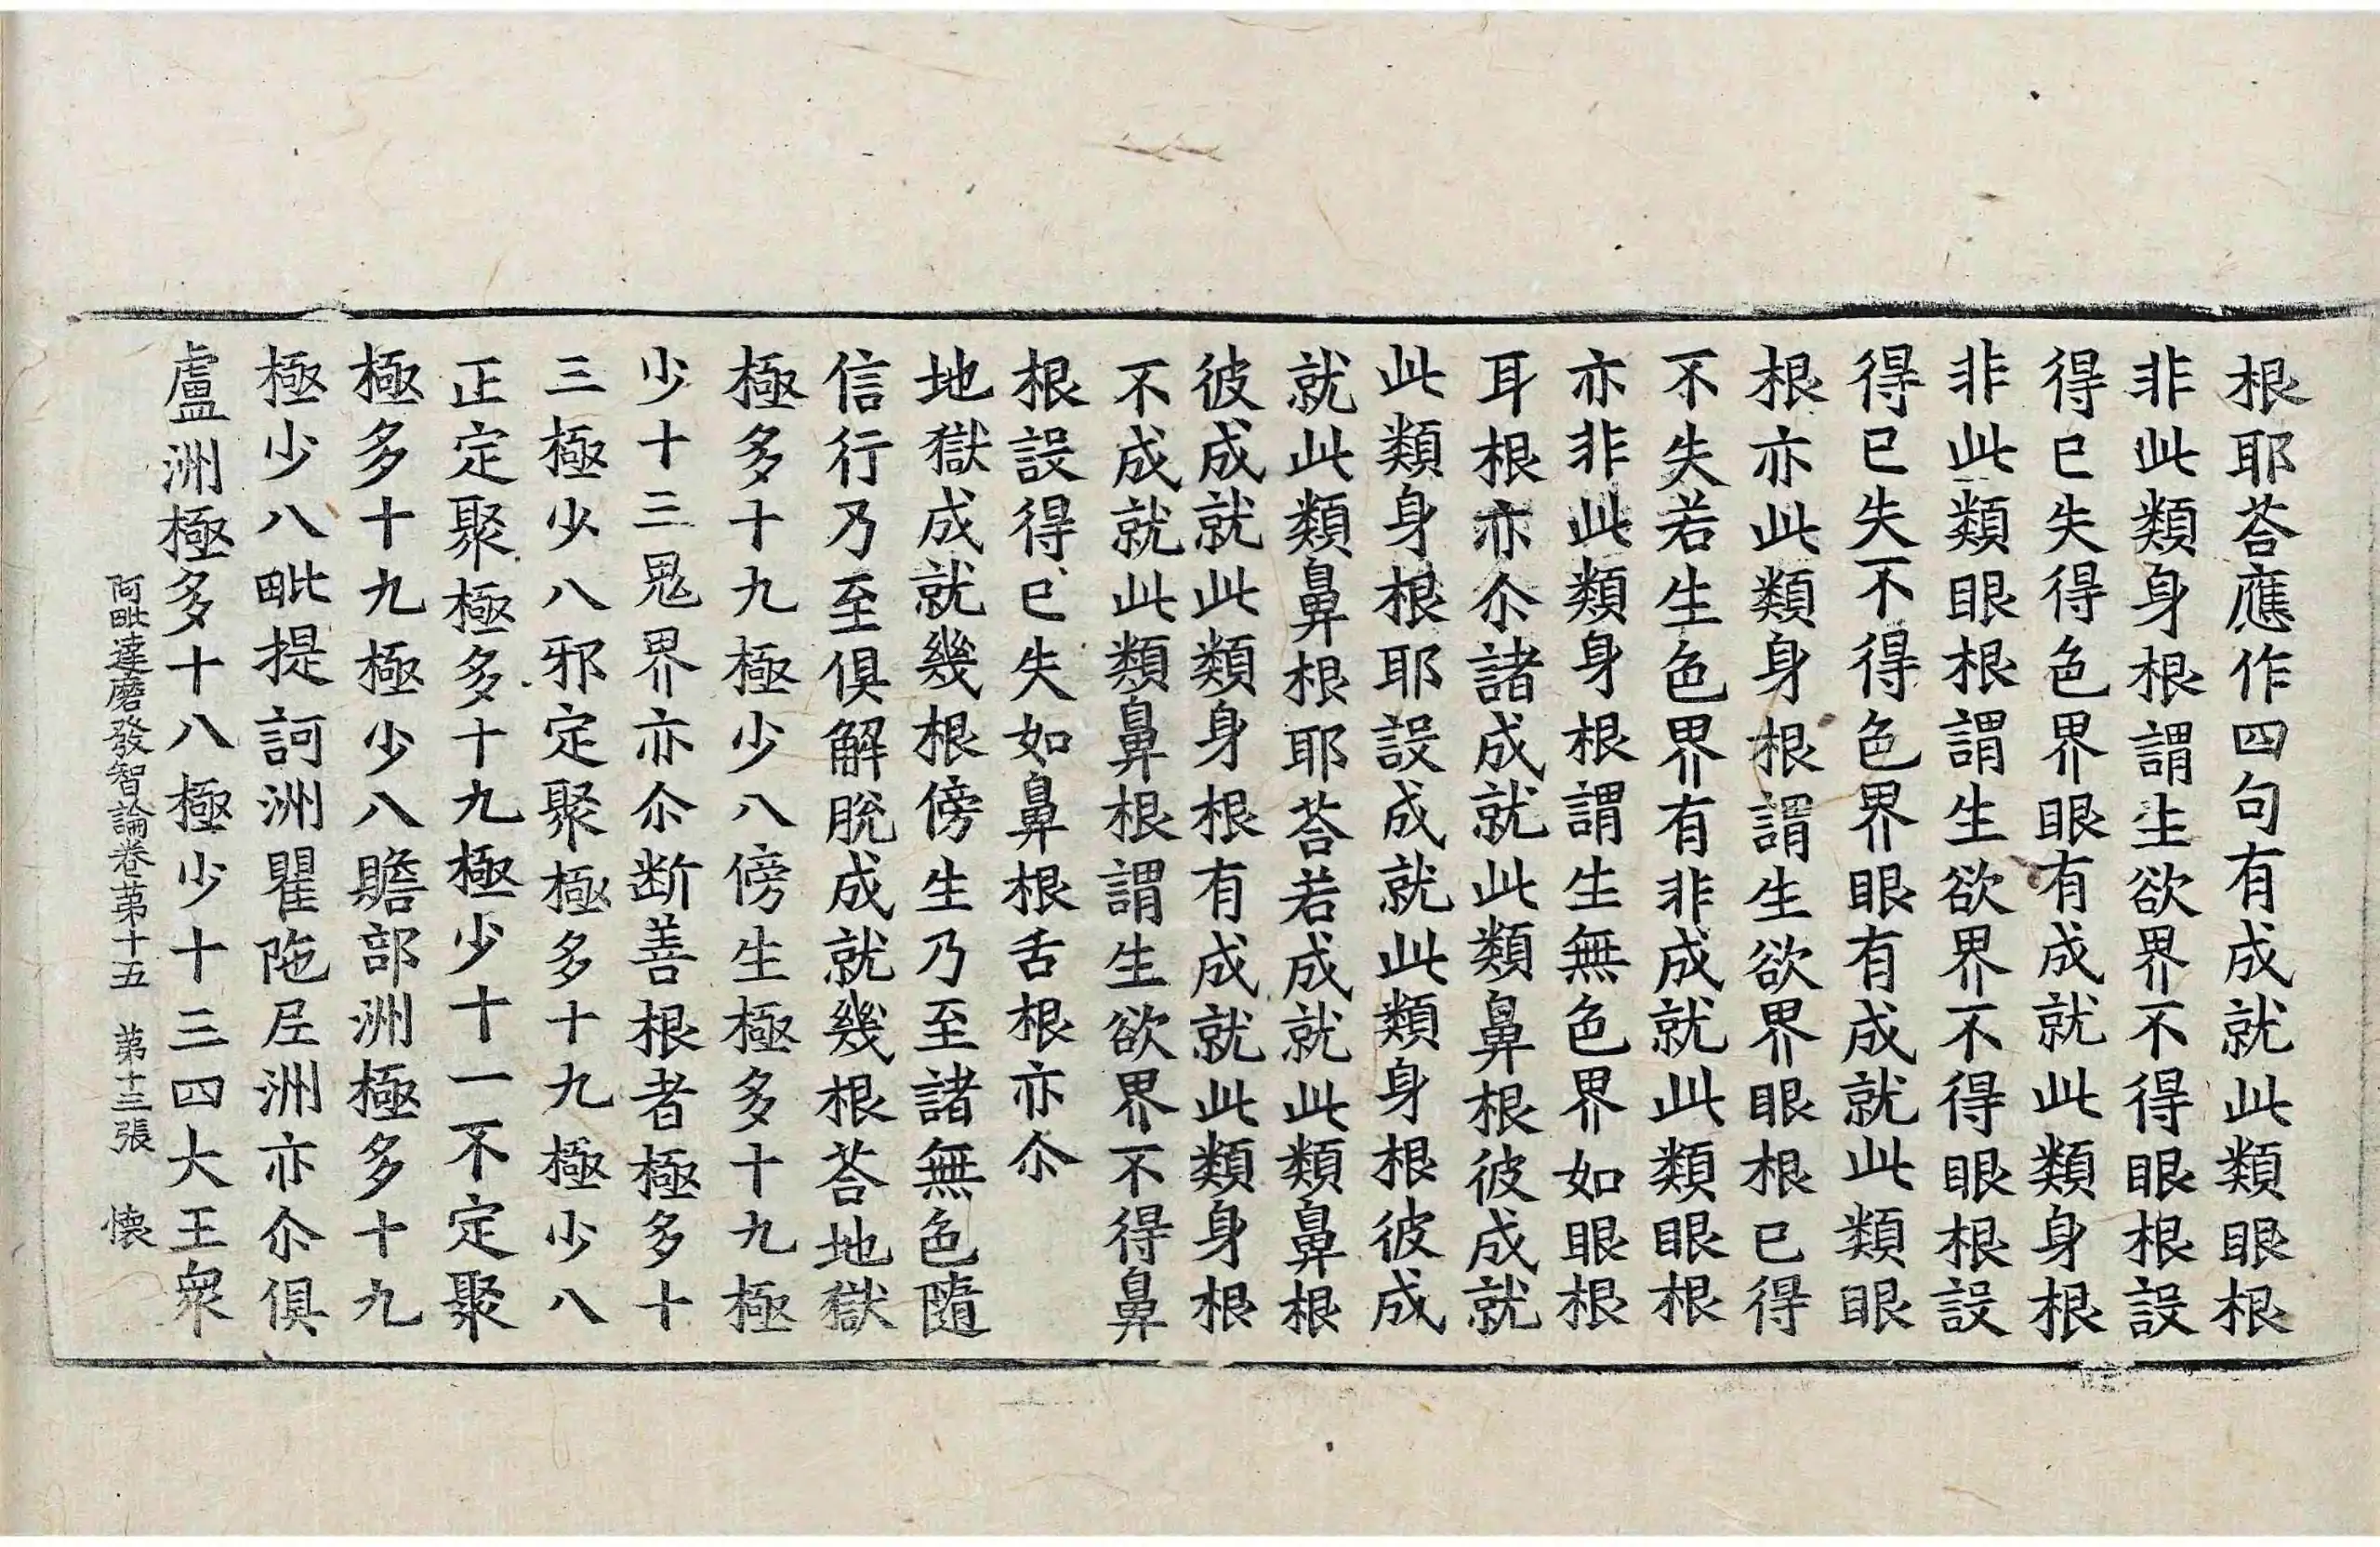 根耶荅應作四句有成就此類眼根
非此類身根謂生欲界不得眼根設
得已失得色界眼有成就此類身根
非此類眼根謂生欲界不得眼根設
得已失不得色界眼有成就此類眼
根亦此類身根謂生欲界眼根已得
不失若生色界有非成就此類眼根
亦非此類身根謂生無色界如眼根
耳根亦尒諸成就此類鼻根彼成就
此類身根耶設成就此類身根彼成
就此類鼻根耶荅若成就此類鼻根
彼成就此類身根有成就此類身根
不成就此類鼻根謂生欲界不得鼻
根設得已失如鼻根舌根亦尒
地獄成就幾根傍生乃至諸無色隨
信行乃至俱解脫成就幾根荅地獄
極多十九極少八傍生極多十九極
少十三鬼界亦尒断善根者極多十
三極少八邪定聚極多十九極少八
正定聚極多十九極少十一不定聚
極多十九極少八贍部洲極多十九
極少八毗提訶洲瞿陁尼洲亦尒俱
盧洲極多十八極少十三四大王衆
阿毗達磨發智論卷苐十五 苐十三張 懐